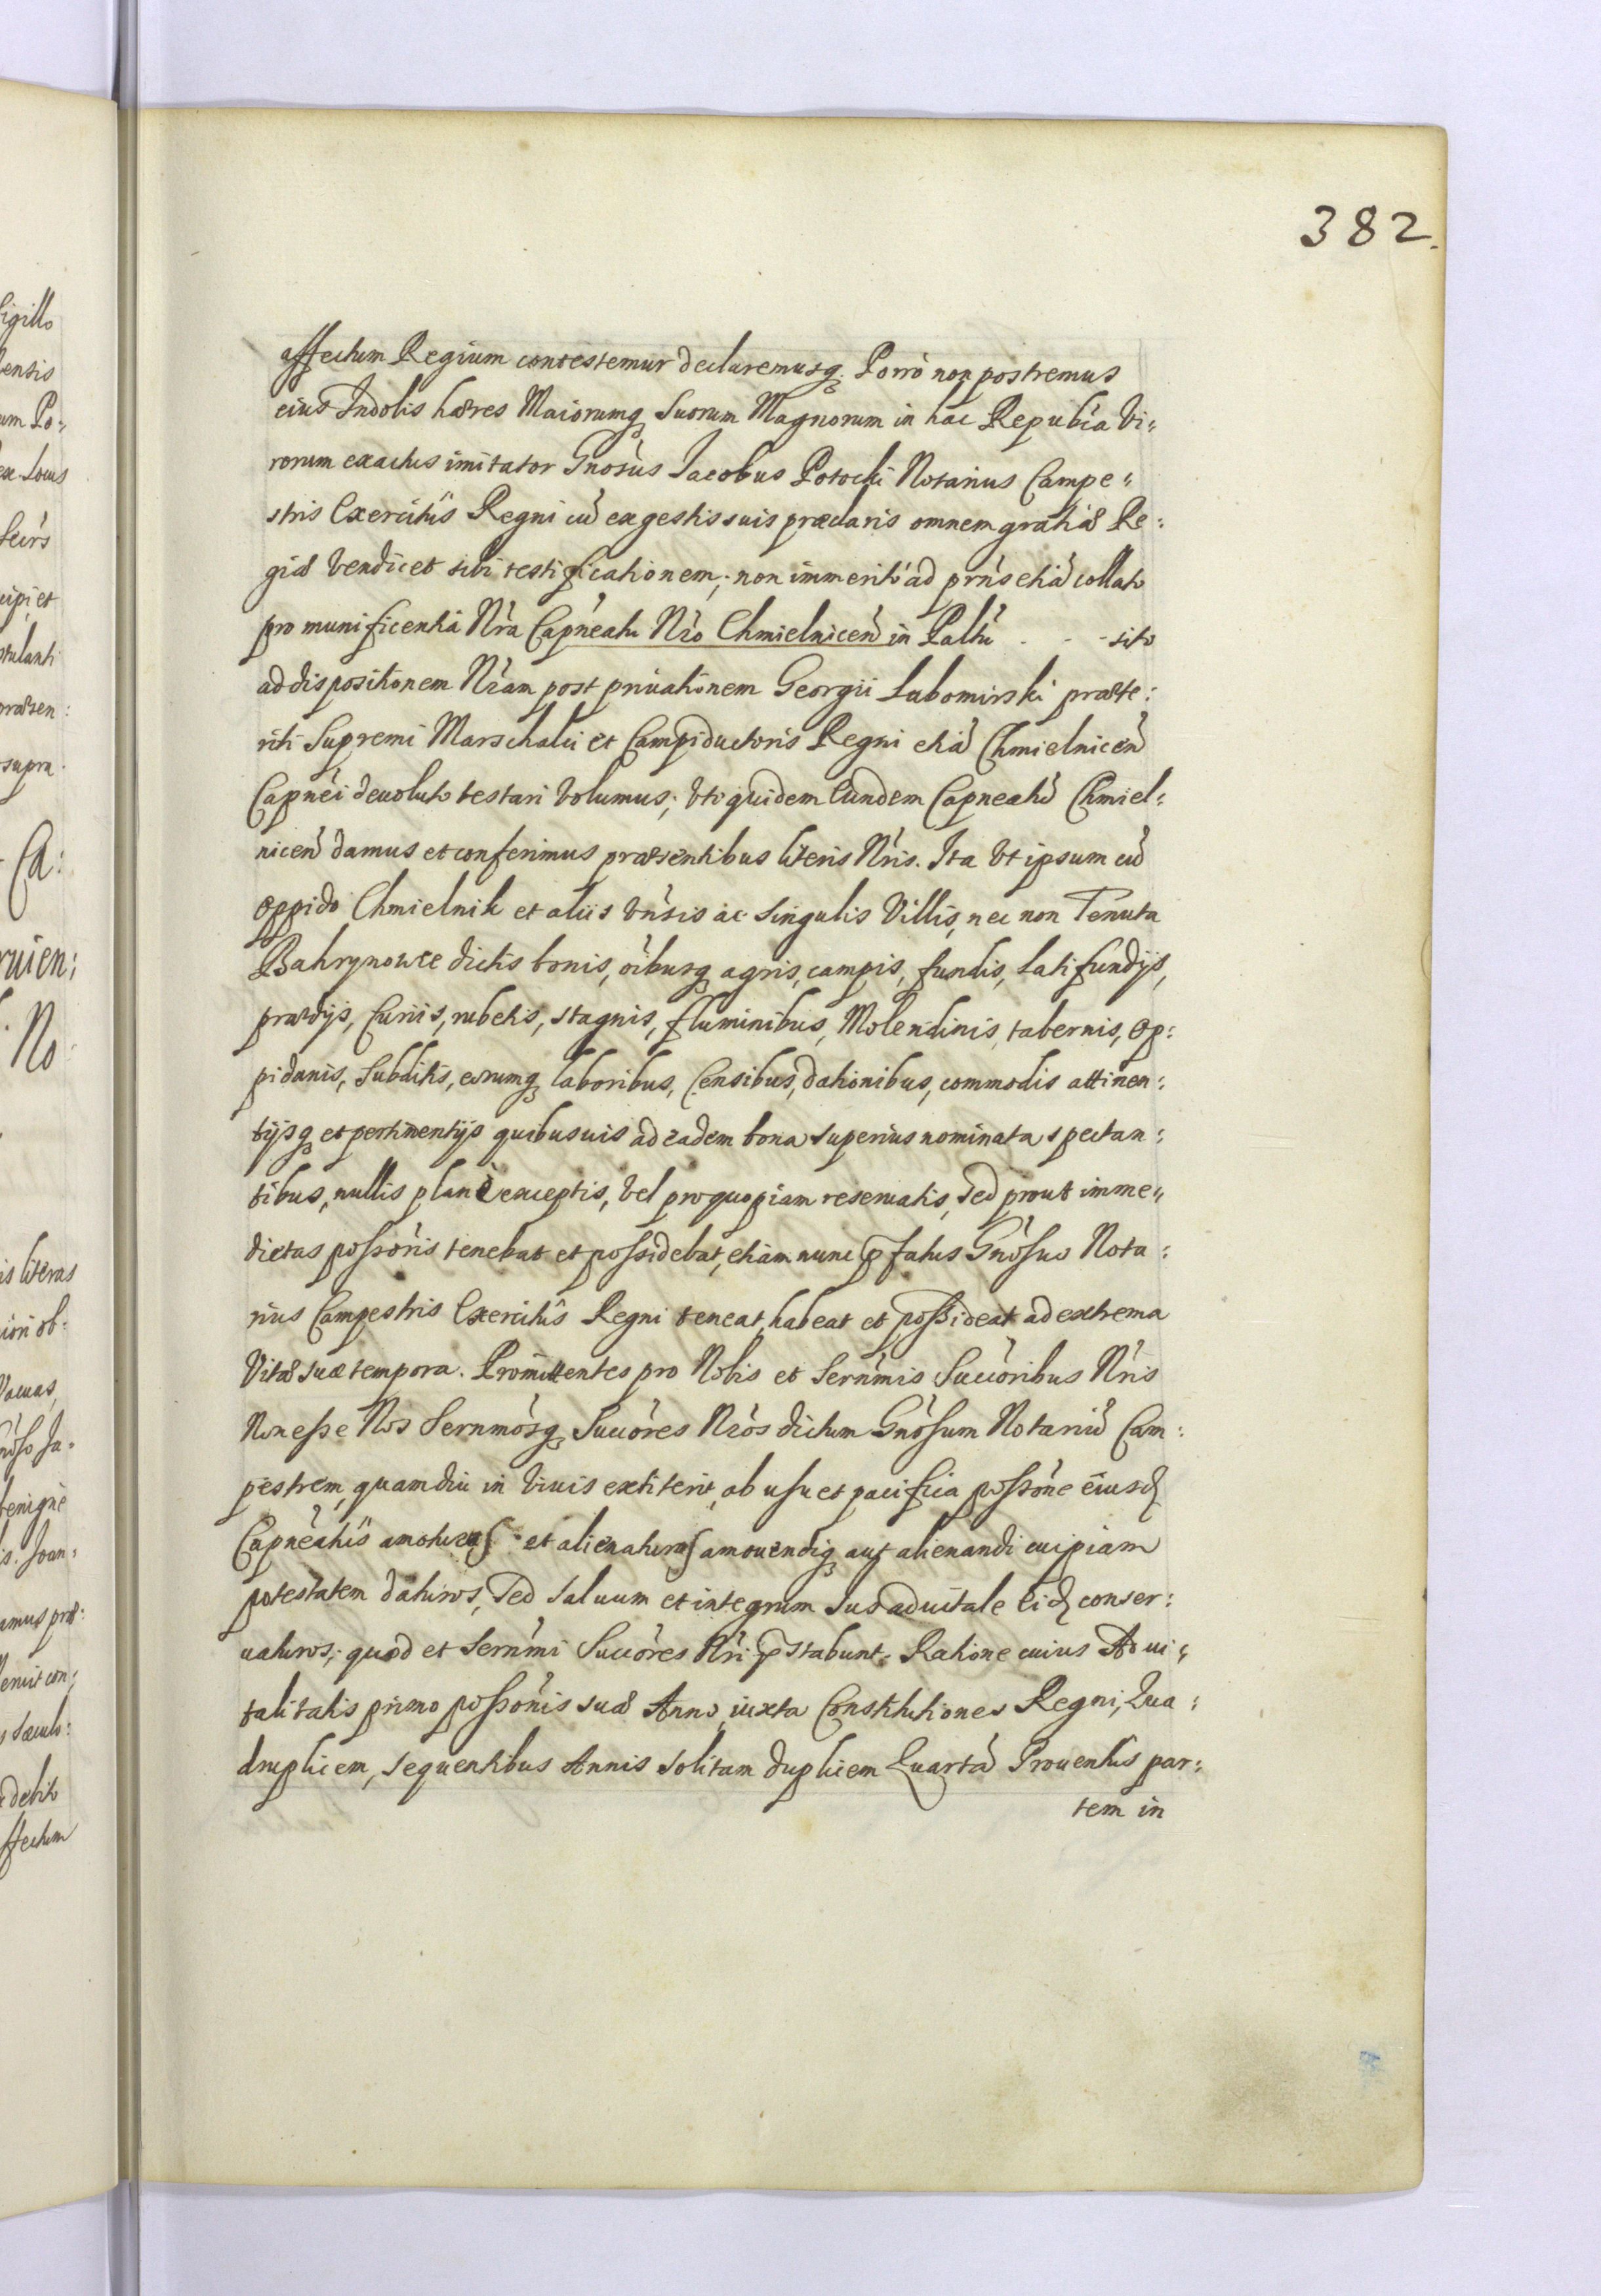 382.
affectum Regium contestemur declaremusq. Porrò non postremus
eius Indolis hæres Maiorumq Suorum Magnorum in hac Republa Vi:
rorum exactus imitator Gnosus Jacobus Potocki Notarius Campe:
stris Exercitûs Regni cũ ex gestis suis præclaris omnem gratiæ Re:
giæ vendicet sibi testificationem; non immeritò ad prius etiã collato
pro munificentia Nrã Capneatu Nro Chmielnicen in Paltu . - - sito
ad dispositionem Nram post priuationem Georgii Lubomirski præte:
riti Supremi Marschalci et Campiductoris Regni etiã Chmielnicen
Capnei deuoluto testari volumus; vti quidem Eundem Capneatũ Chmiel:
nicen damus et conferimus præsentibus literis Nris. Ita vt ipsum cũ
oppido Chmielnik et aliis vnsis ac singulis Villis, nec non Tenuta
Bahrynowce dictis bonis, oibusq agris, campis, fundis, latifundijs,
prædijs, Curiis, rubetis, stagnis, fluminibus, Molendinis, tabernis, op:
pidanis, subditis, eorumq laboribus, Censibus, dationibus, commodis attinen:
tijsq et pertinentijs quibusuis ad eadem bona superius nominata spectan:
tibus, nullis planè exceptis, vel pro quopiam reseruatis, sed prout imme:
diatus possoris tenebat et possidebat, etiam nunc pfatus Gnosus Nota:
rius Campestris Exercitûs Regni teneat, habeat et possideat ad extrema
Vitæ suæ tempora. Promittentes pro Nobis et Sernmis Succoribus Nris
Non esse Nos Sernmosq Succores Nros dictum Gnosum Notariũ Cam:
pestrem, quamdiu in viuis extiterit, ab usu et pacifica possone eiusd
Capneatûs amoturos et alienaturos amouendiq aut alienandi cuipiam
potestatem daturos, sed saluum et integrum Jus aduitale Eid conser:
uaturos; quod et Sernmi Succores Nri pstabunt. Ratione cuius Adui:
talitatis primo possonis suæ Anno, iuxta Constitutiones Regni, Qua:
druplicem, sequentibus Annis solitam duplicem Quartã Prouentûs par:
tem in